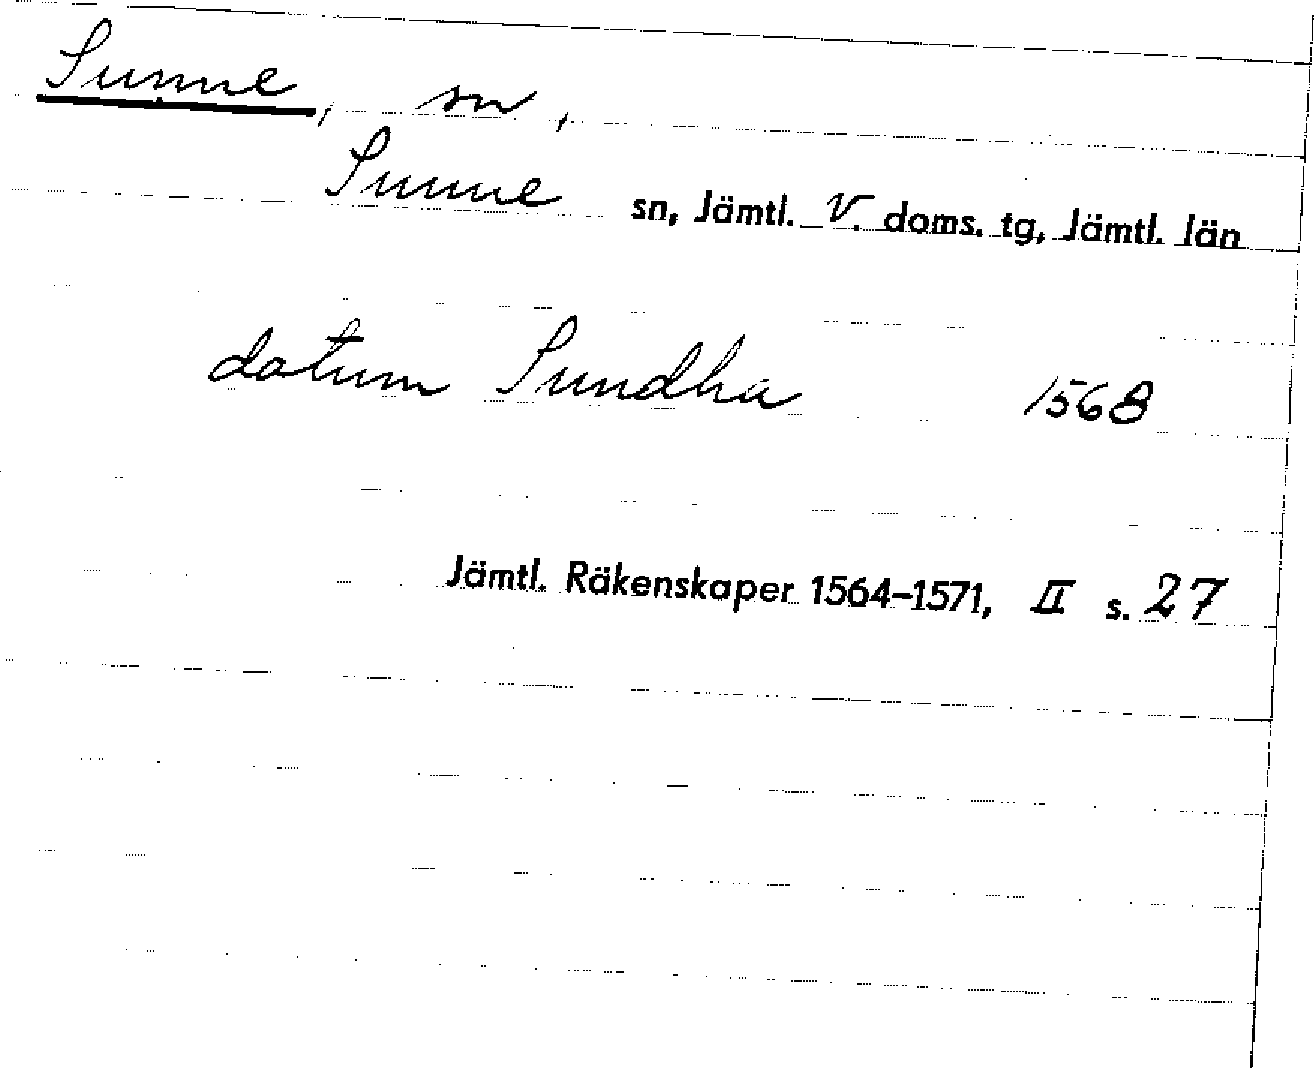 Sunne, sn,
Sunne sn, Jämtl. V. doms. tg, Jämtl. län
datum Sundha 1568
Jämtl. Räkenskaper 1564–1571, II s. 27